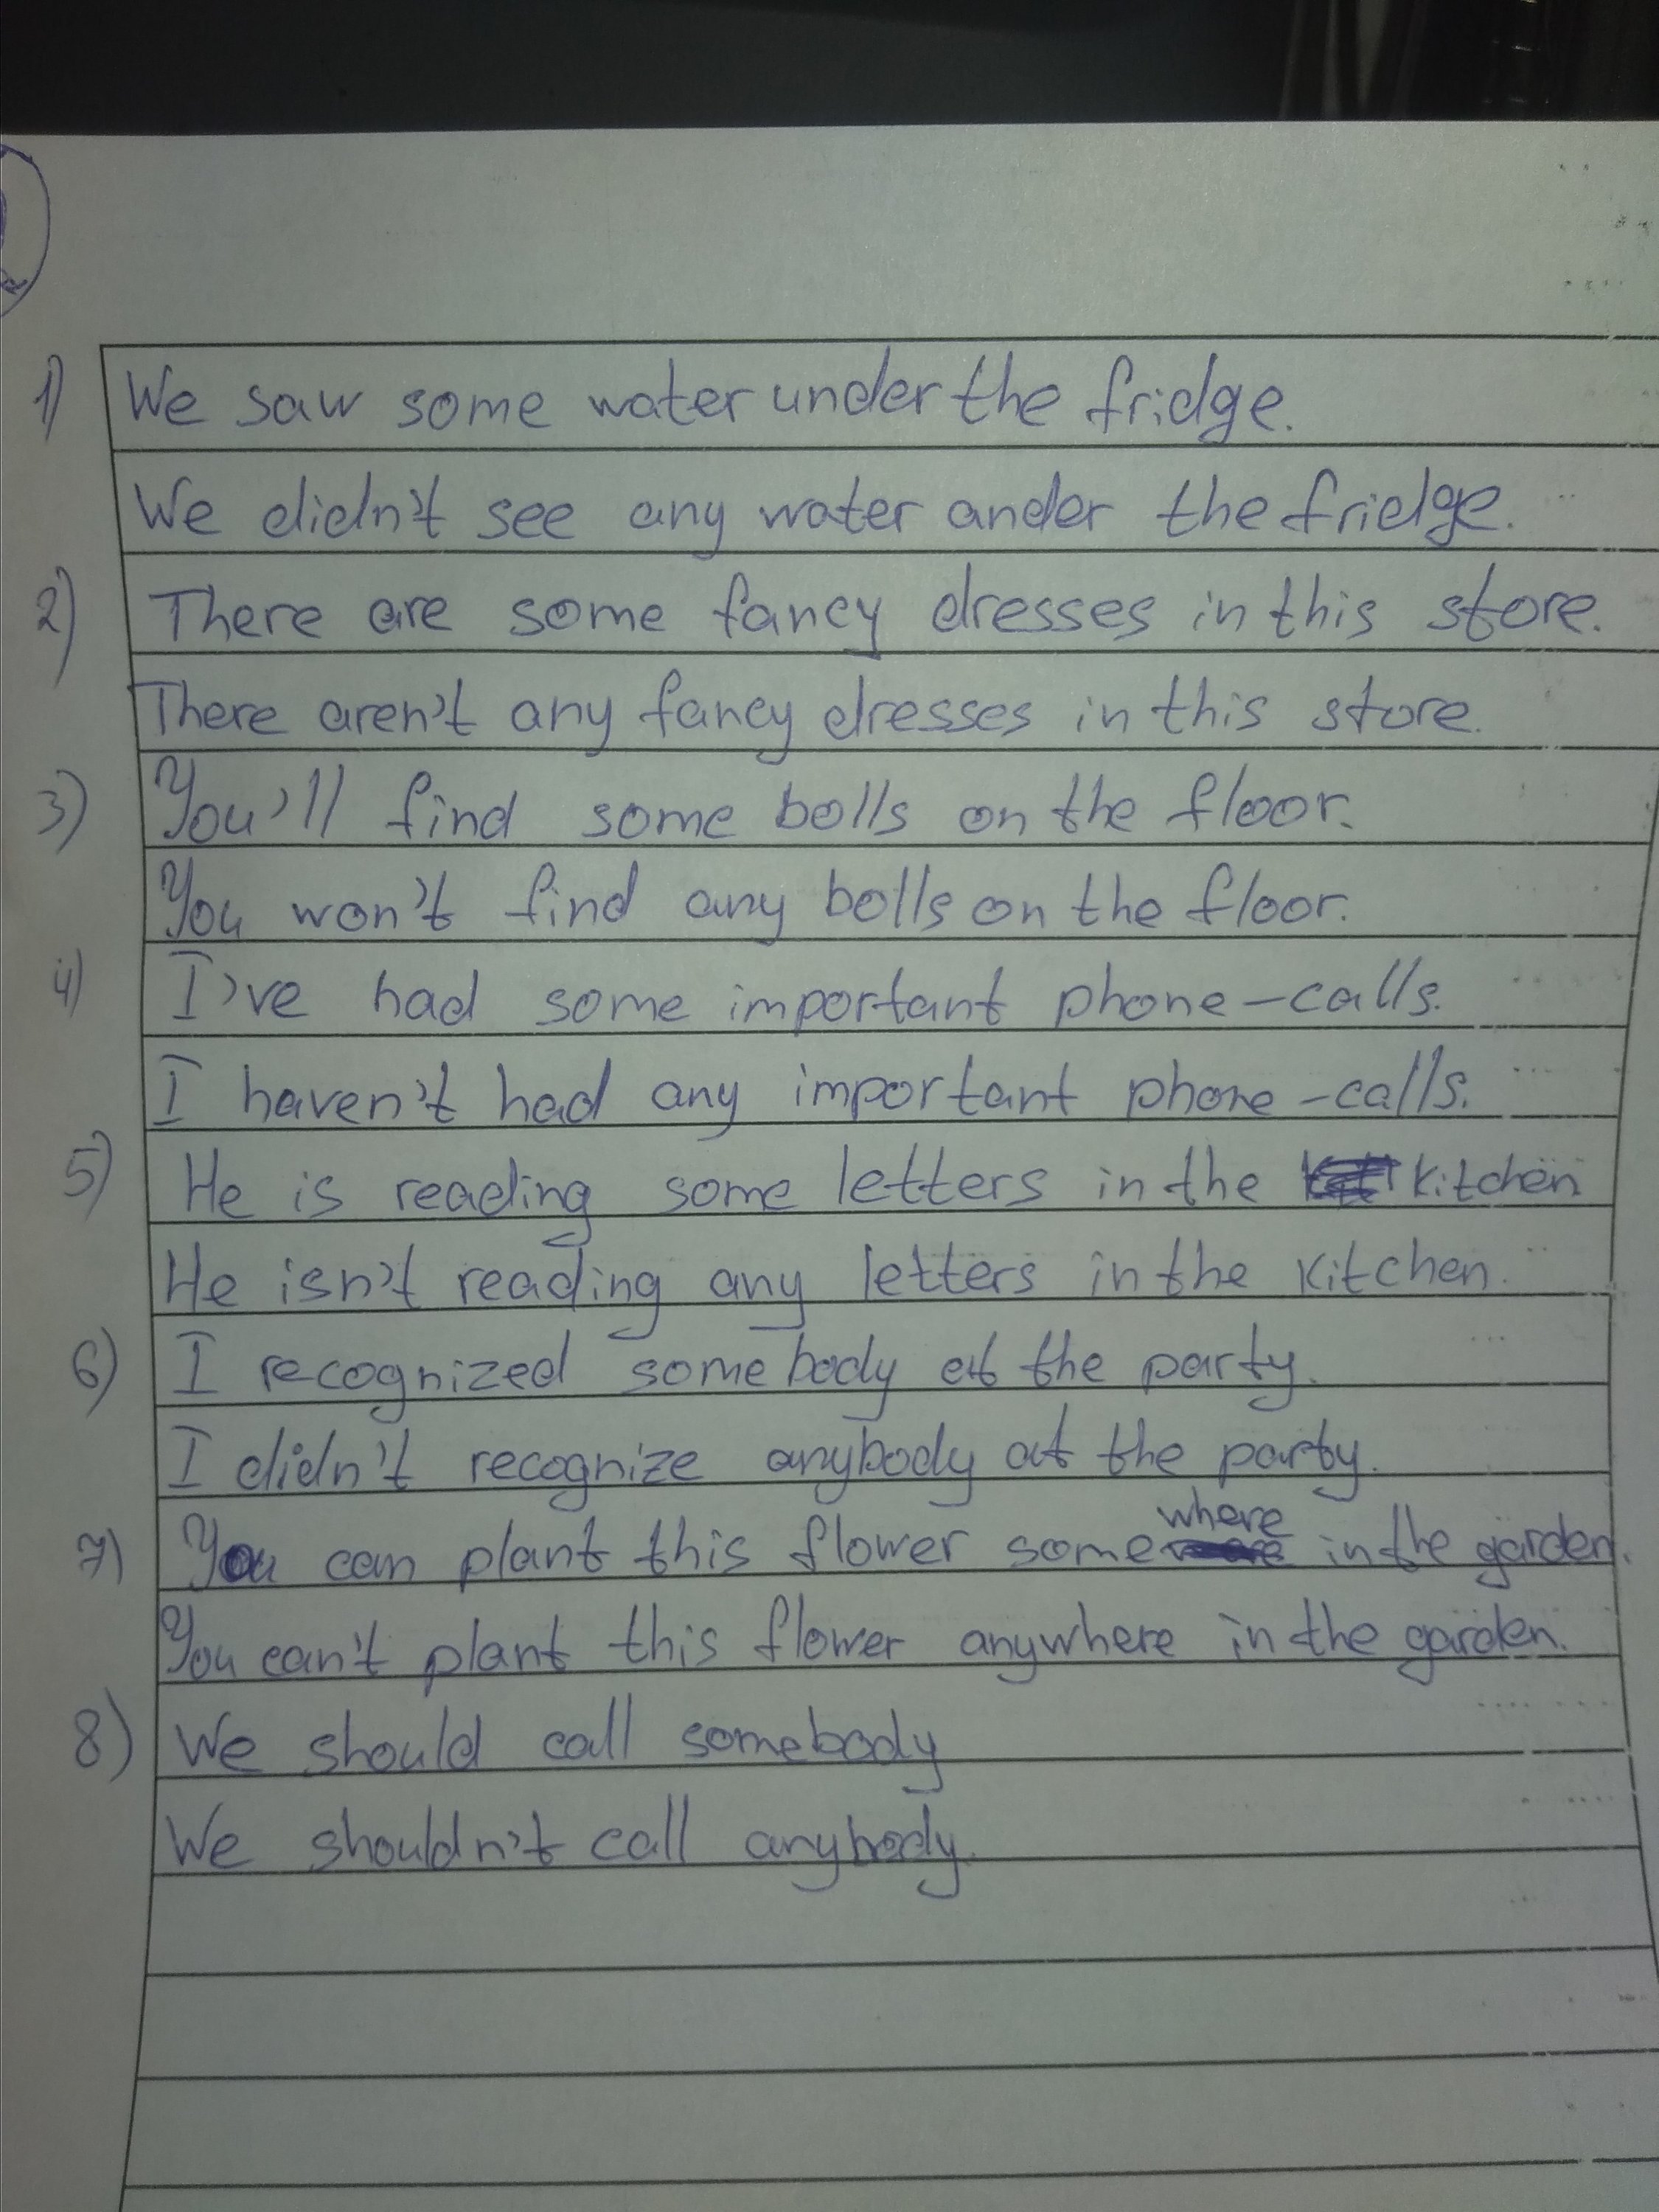 1) We saw some water under the fridge.
We didn't see any water ander the fridge.
2) There are some fancy dresses in this store.
There aren't any fancy dresses in this store.
3) You'll find some bolls on the floor.
You won't find any bolls on the floor.
4) I've had some important phone-calls.
I haven't had any important phone-calls.
5) He is reading some letters in the kitchen
He isn't reading any letters in the kitchen.
6) I recognized somebody at the party.
I didn't recognize anybody at the party.
7) You can plant this flower somewhere in the garden.
You can't plant this flower anywhere in the garden.
8) We should call somebody
We shouldn't call anybody.